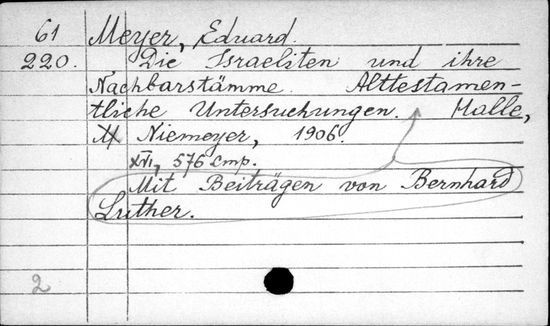 61 Meyer, Eduard.
220. Die Israeliten und ihre
Nachbarstämme. Alttestamen-
tliche Untersuchungen. Halle,
M Niemeyer, 1906.
XVI, 576 стр.
Mit Beiträgen von Bernhard
Luther.
2